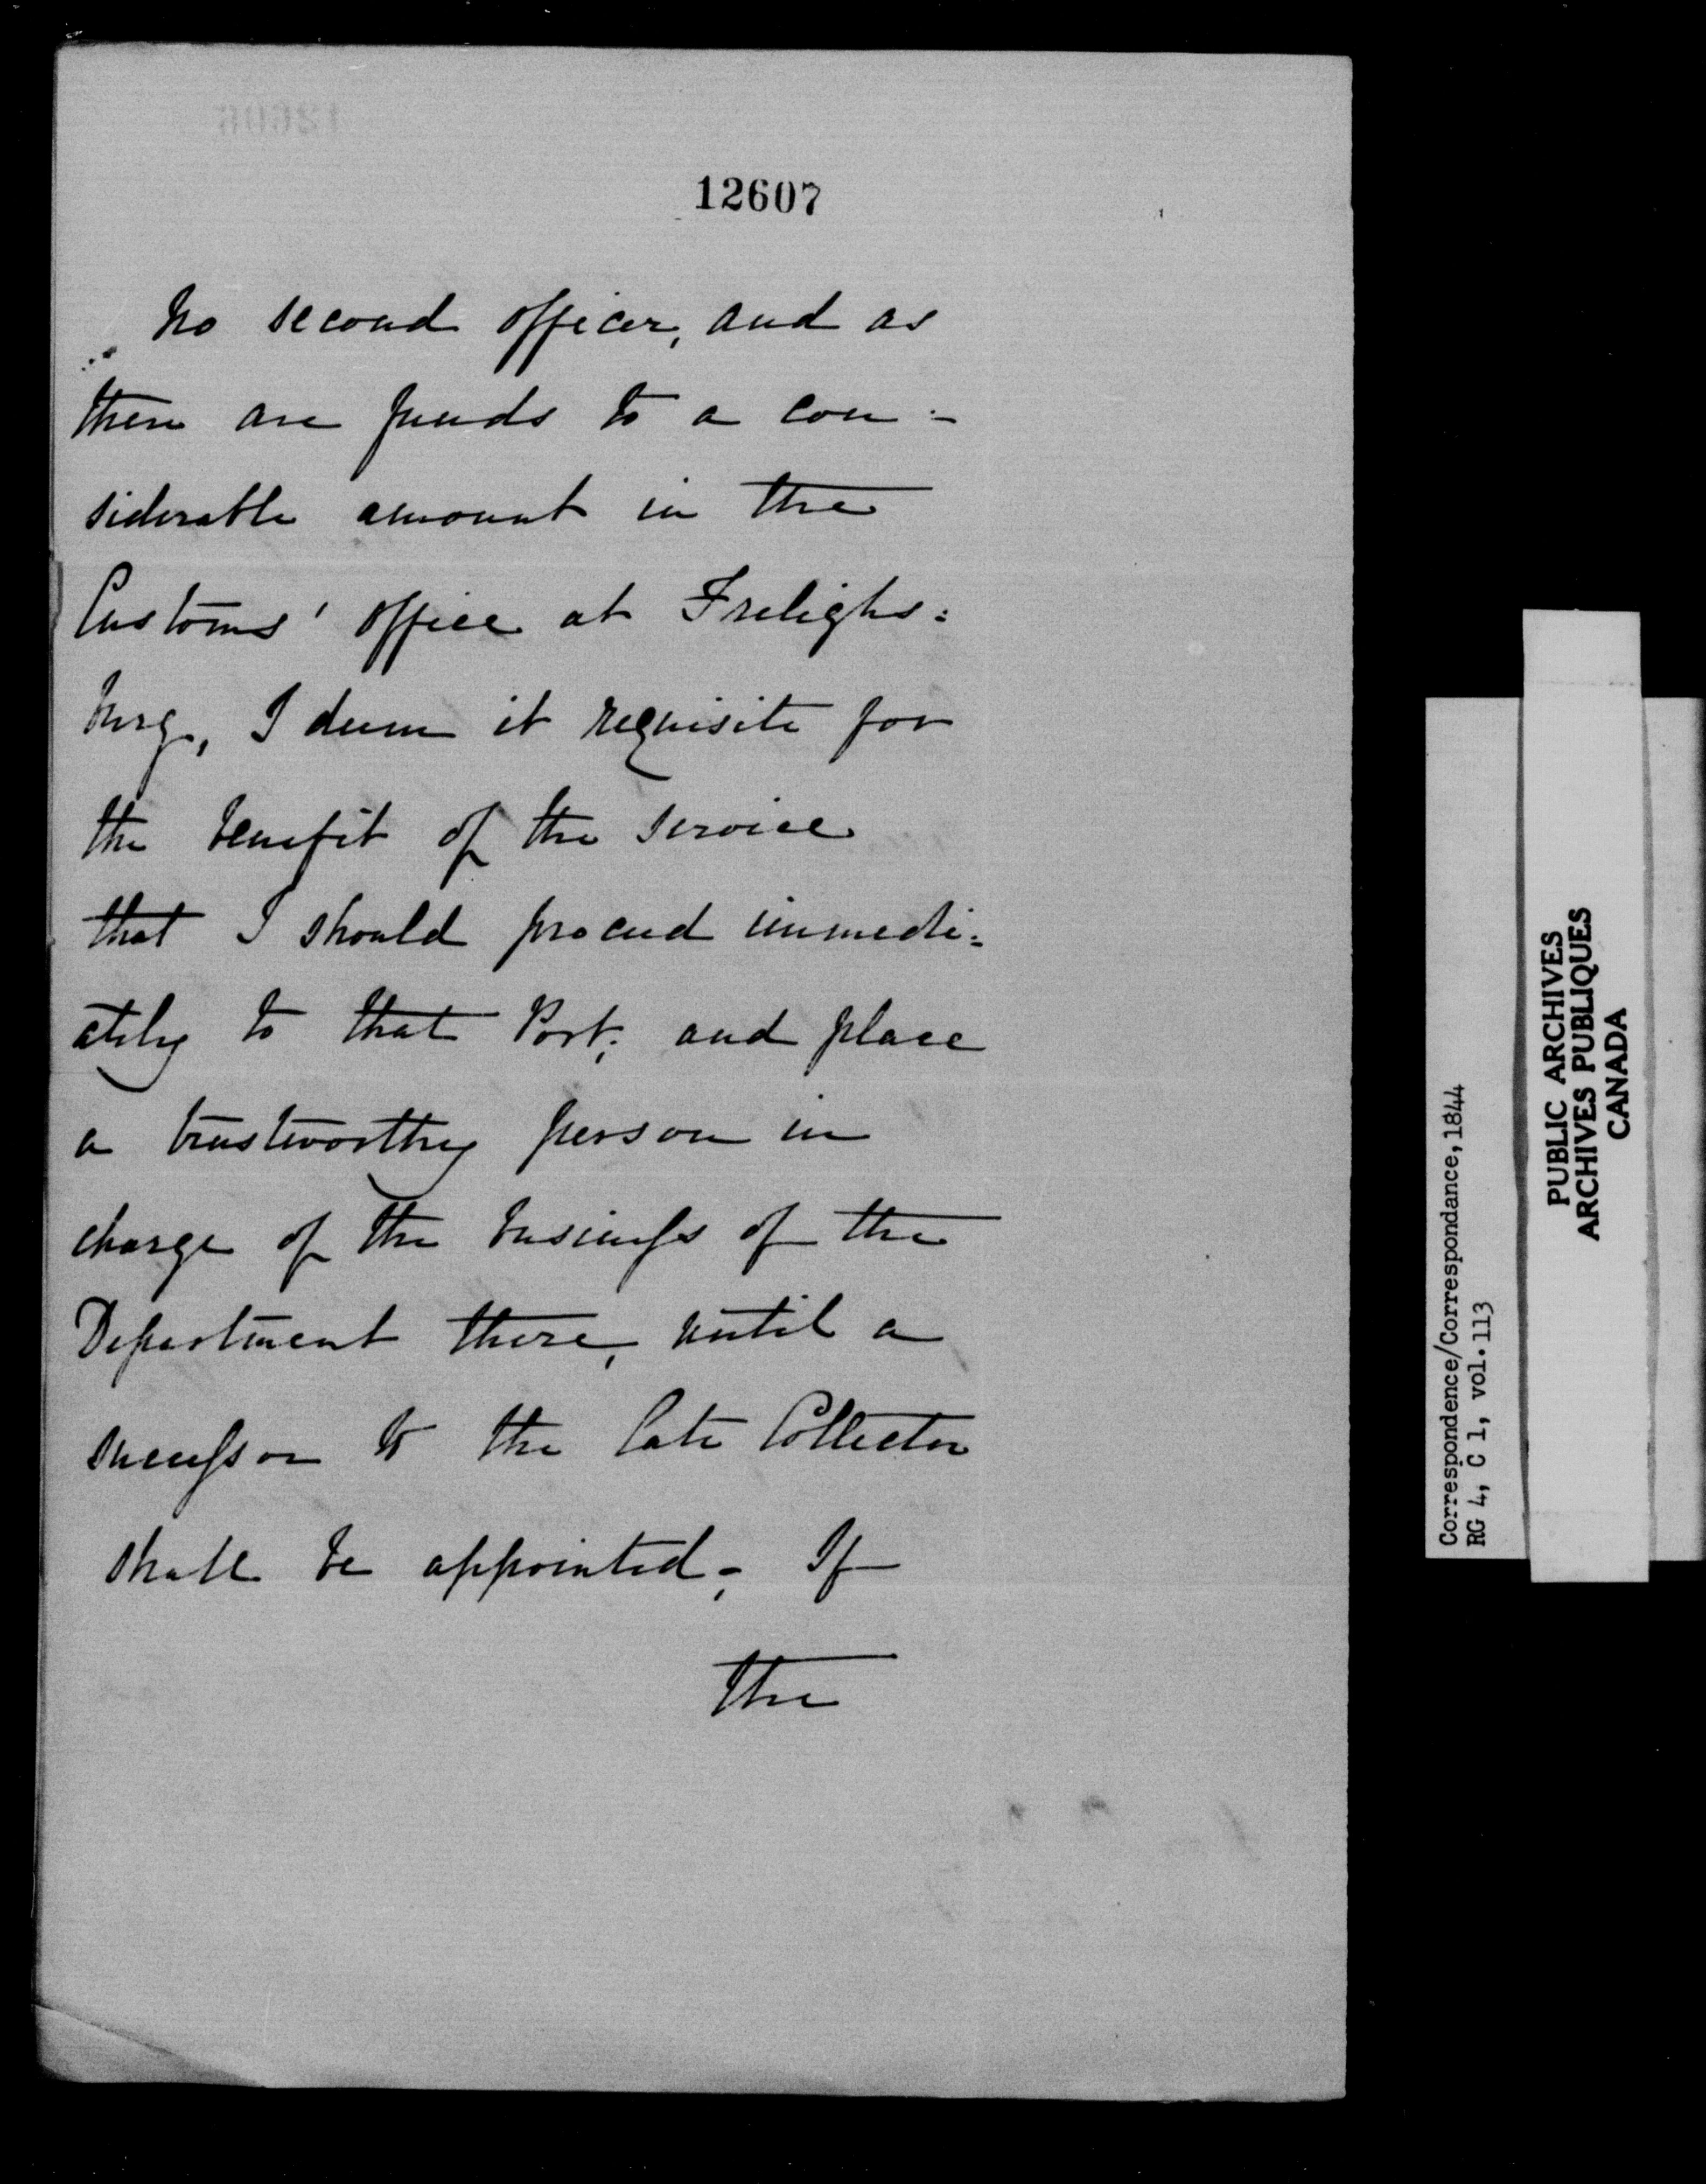 12607
no second officer, and as
there are funds to a con-
siderable amount in the
Customs' office at Frelighs=
burg, I deem it requisite for
the benefit of the service
that I should proceed immedi=
ately to that Port; and place
a trustworthy person in
charge of the business of the
Department there, until a
successor to the late Collector
shall be appointed; If
the
Correspondence/Correspondance, 1844
RG 4, C 1, vol. 113
PUBLIC ARCHIVES
ARCHIVES PUBLIQUES
CANADA